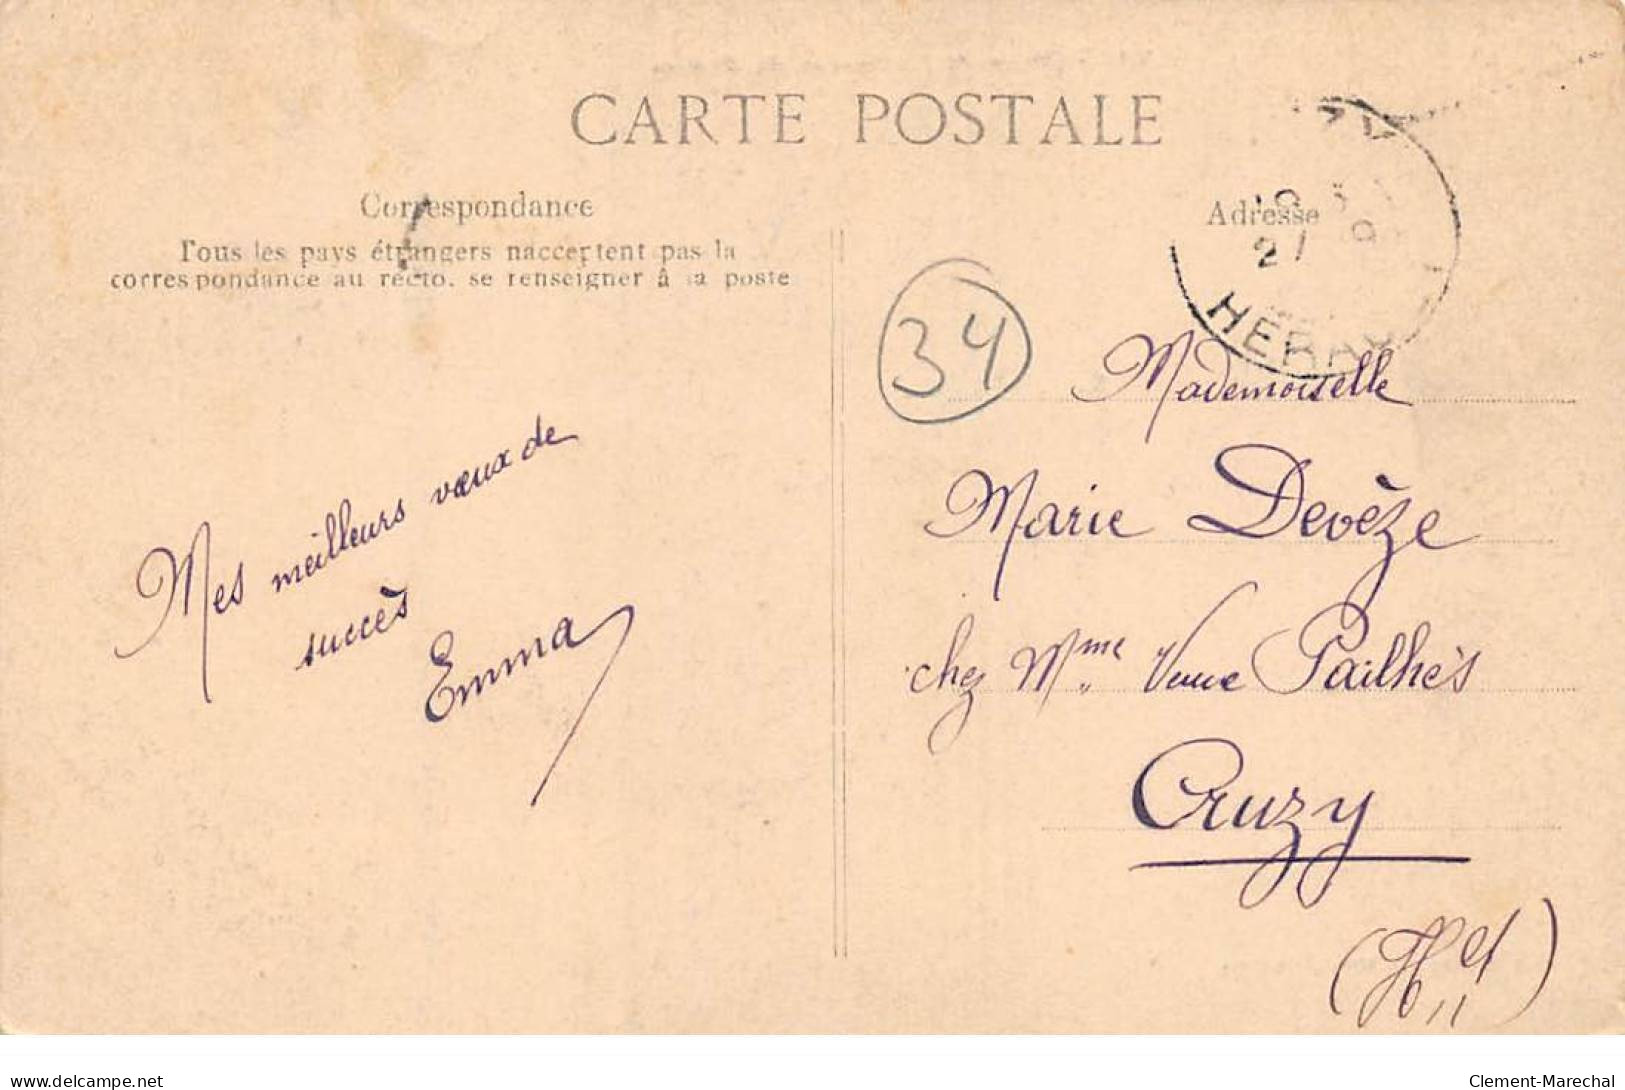 CARTE POSTALE
Correspondance
Tous les pays étrangers n'acceptent pas la
correspondance au recto. se renseigner â la poste
Mes meilleurs vœux de
succès
Emma
Adresse
21
HERAU
34
Mademoiselle
Marie Devèze
chez Mme Veuve Pailhès
Cruzy
(Hlt)
delcampe.net
Clement-Marechal